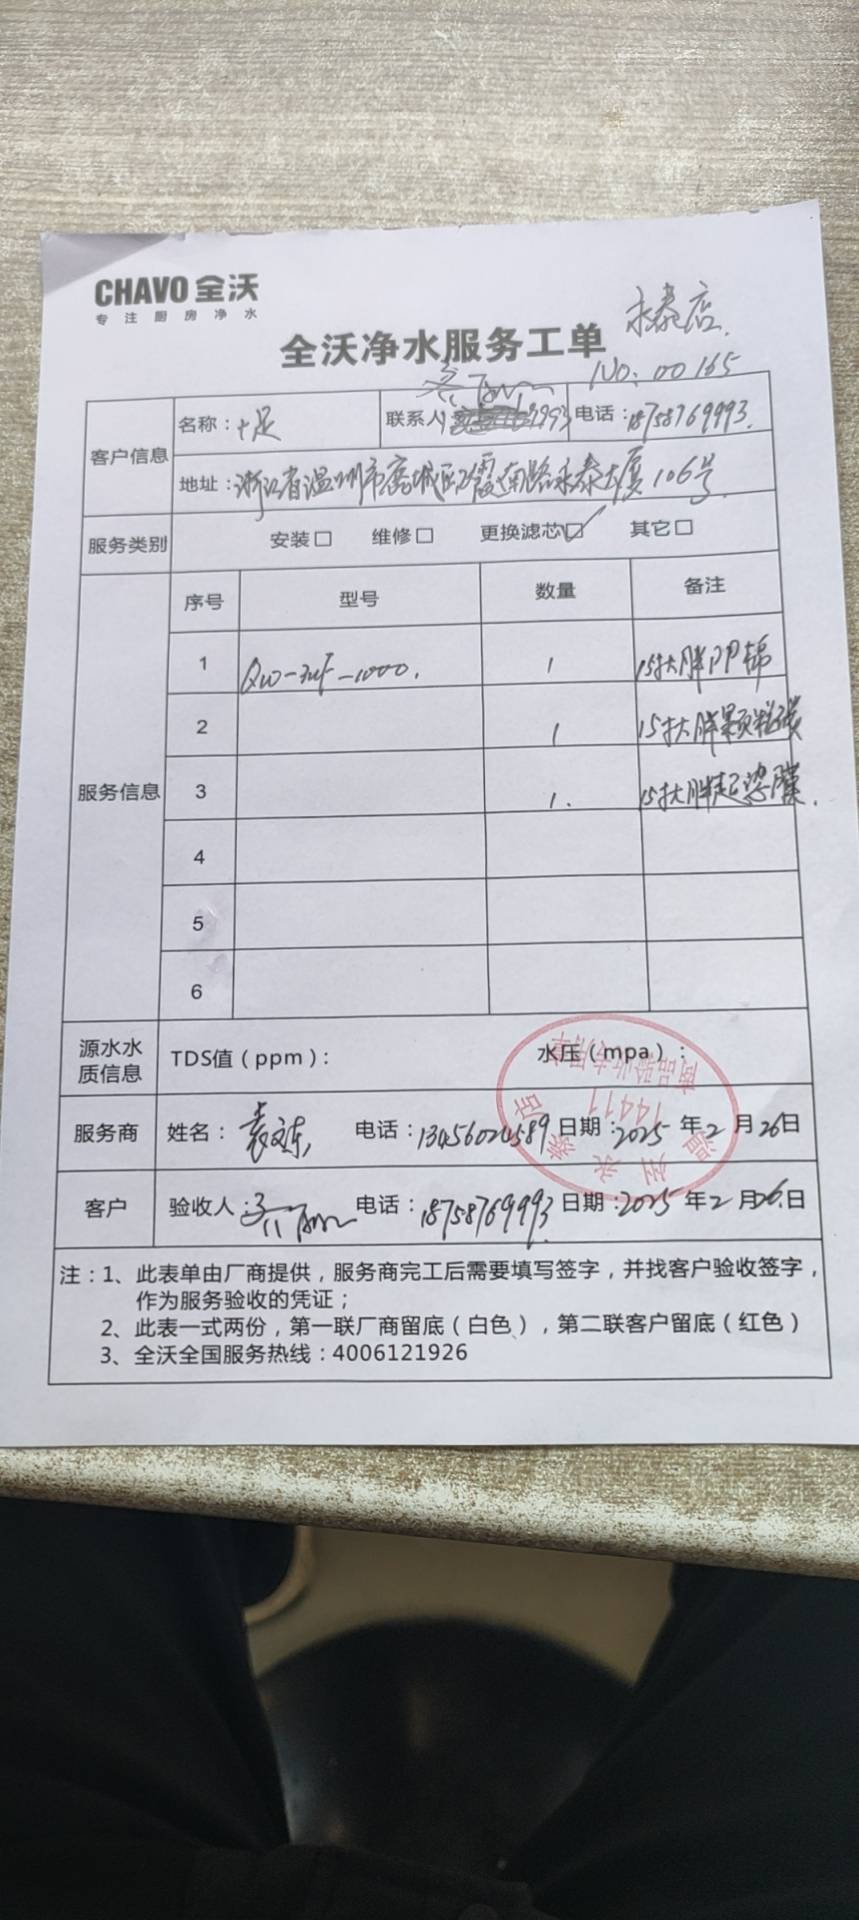 CHAVO 全沃
专注厨房净水
永泰店
全沃净水服务工单
No: 00165
客户信息 名称：十足 联系人 电话：18758769993
地址：浙江省温州市鹿城区飞霞南路永泰大厦106号
服务类别 安装□ 维修□ 更换滤芯☑ 其它□
服务信息 序号 型号 数量 备注
1 QW-3UF-1000. 1 15寸大胖PP棉
2 1 15寸大胖颗粒碳
3 1. 15寸大胖超滤膜.
4
5
6
源水水质信息 TDS值（ppm）： 水压（mpa）：
服务商 姓名：袁文东 电话：13456024589 日期：2025年2月26日
客户 验收人： 电话：18758769993 日期：2025年2月26日
温州永泰店
14411
商品验收专用章
注：1、此表单由厂商提供，服务商完工后需要填写签字，并找客户验收签字，
作为服务验收的凭证；
2、此表一式两份，第一联厂商留底（白色），第二联客户留底（红色）
3、全沃全国服务热线：4006121926